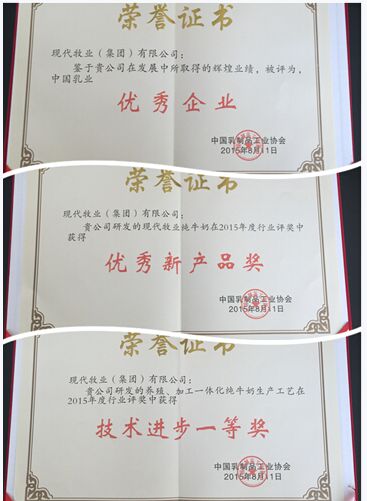 荣誉证书
现代牧业（集团）有限公司：
鉴于贵公司在发展中所取得的辉煌业绩，被评为，
中国乳业
优秀企业
中国乳制品工业协会
2015年8月11日
荣誉证书
现代牧业（集团）有限公司：
贵公司研发的现代牧业纯牛奶在2015年度行业评奖中
获得
优秀新产品奖
中国乳制品工业协会
2015年8月11日
荣誉证书
现代牧业（集团）有限公司：
贵公司研发的养殖、加工一体化纯牛奶生产工艺在
2015年度行业评奖中获得
技术进步一等奖
中国乳制品工业协会
2015年8月11日